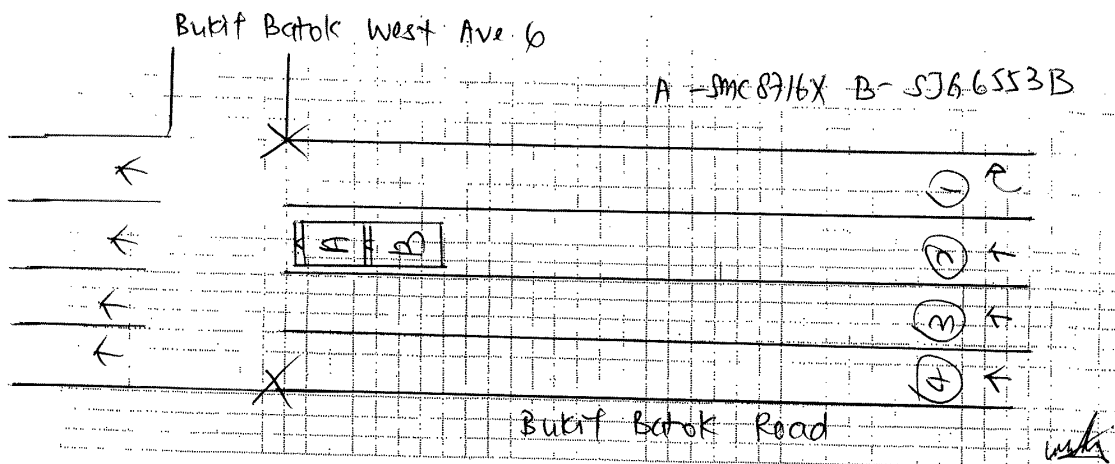 Bukit Batok West Ave 6
A - SMC8716X B - SJG6553B
1
A B
2
3
4
Bukit Batok Road